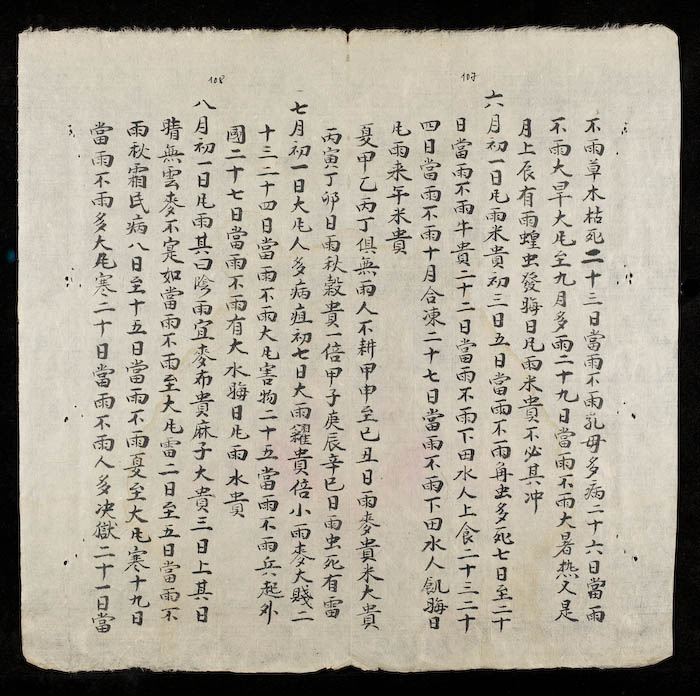 107
不雨草木枯死二十三日當雨不雨乳母多病二十六日當雨
不雨大旱大凡至九月多雨二十九日當雨不雨大暑热又是
月上辰有雨蝗虫發晦日凡雨米貴不必其冲
六月初一日凡雨米貴初三日五日當雨不雨角虫多死七日至二十
日當雨不雨牛貴二十二日當雨不雨下田水人上食二十三二十
四日當雨不雨十月合凍二十七日當雨不雨下田水人飢晦日
凡雨来年米貴
夏甲乙丙丁俱無雨人不耕甲申至己丑日雨麥貴米大貴
丙寅丁卯日雨秋穀貴一倍甲子庚辰辛巳日雨虫死有雷
108
七月初一日大凡人多病疽初七日大雨糴貴倍小雨麥大賤二
十三二十四日當雨不雨大凡害物二十五當雨不雨兵起外
國二十七日當雨不雨有大水晦日凡雨水貴
八月初一日凡雨其曰陰雨宜麥布貴麻子大貴三日上其日
晴無雲麥不寔如當雨不雨至大凡雷二日至五日當雨不
雨秋霜民病八日至十五日當雨不雨夏至大凡寒十九日
當雨不雨多大凡寒二十日當雨不雨人多决獄二十一日當